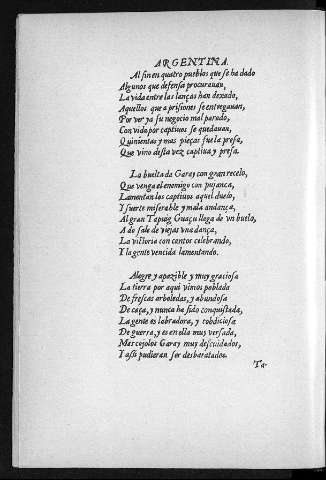 ARGENTINA.
Al fin en quatro pueblos que se ha dado
Algunos que defensa procurauan,
La vida entre las lanças han dexado,
Aquellos que a prisiones se entregauan,
Por ver ya su negocio mal parado,
Con vida por captiuos se quedauan,
Quinientas y mas pieças fue la presa,
Que vino desta vez captiua y presa.
La buelta da Garay con gran recelo,
Que venga el enemigo con pujança,
Lamentan los captiuos aquel duelo,
Y suerte miserable y mala andança,
Al gran Tapuig Guaçu llega de vn buelo,
A do sale de viejas vna dança,
La victoria con cantos celebrando,
Y la gente vencida lamentando.
Alegre y apazible y muy graciosa
La tierra por aqui vimos poblada
De frescas arboledas, y abundosa
De caça, y nunca ha sido conquistada,
La gente es labradora, y cobdiciosa
De guerra, y es en ella muy versada,
Marcojolos Garay muy descuidados,
Y assi pudieran ser desbaratados.
Ta-